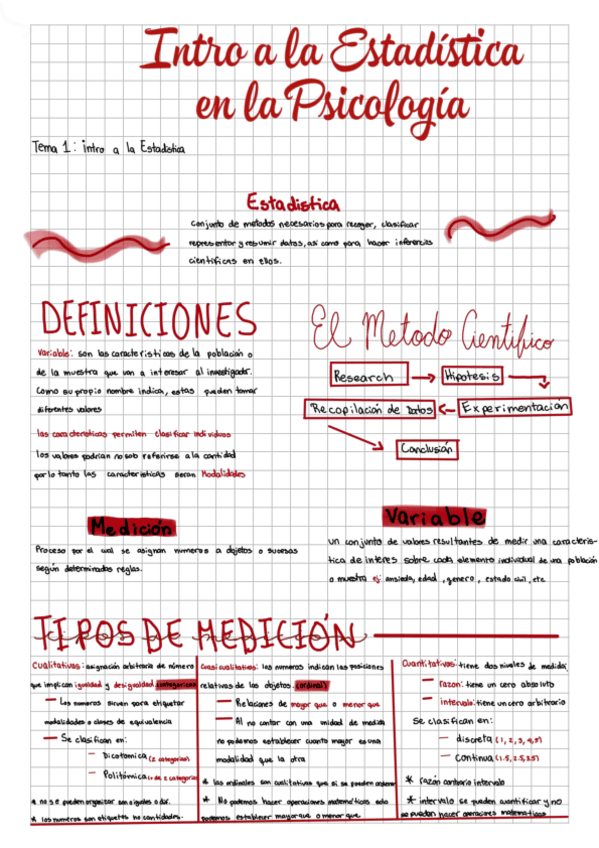 Intro a la Estadística
en la Psicología
Tema 1: intro a la Estadistica
Estadistica
conjunto de metodos necesarios para recoger, clasificar
representar y resumir datos, asi como para hacer inferencias
cientificas en ellos.
DEFINICIONES
Variable: son las caracteristicas de la población o
de la muestra que van a interesar al investigador.
Como su propio nombre indica, estas pueden tomar
diferentes valores
las características permiten clasificar individuos
los valores podrían no solo referirse a la cantidad
por lo tanto las caracteristicas seran Modalidades
El Metodo Cientifico
Research
Hipotesis
Recopilación de Datos
Experimentación
Conclusión
Medición
Proceso por el cual se asignan numeros a objetos o sucesos
según determinadas reglas.
Variable
un conjunto de valores resultantes de medir una caracteris-
tica de interes sobre cada elemento individual de una población
o muestra ej: ansieda, edad, genero, estado civil, etc
TIPOS DE MEDICIÓN
Cualitativas: asignación arbitraria de número
que implican igualdad y desigualdad.
Los numeros sirven para etiquetar
modalidades o clases de equivalencia
Se clasifican en:
Dicotomica (2 categorias)
Politómica (+ de 2 categorias
no se pueden organizar son iguales o dif.
* los numeros son etiquetas no cantidades.
Cuasicualitativas: los numeros indican las posiciones
relativas de los objetos. (ordinal)
Relaciones de mayor que o menor que
Al no contar con una unidad de medida
no podemos establecer cuanto mayor es una
modalidad que la otra
* las ordinales son cualitativas que si se pueden ordenar
* No podemos hacer operaciones matemáticas solo
podemos establecer mayor que o menor que
Cuantitativas: tiene dos niveles de medida;
razon: tiene un cero absoluto
intervalo: tiene un cero arbitrario
Se clasifican en:
discreta (1, 2, 3, 4, 5)
continua (1.5, 2.5, 3.5)
* razón contrario intervalo
* intervalo se pueden cuantificar y no
se pueden hacer operaciones matematicas